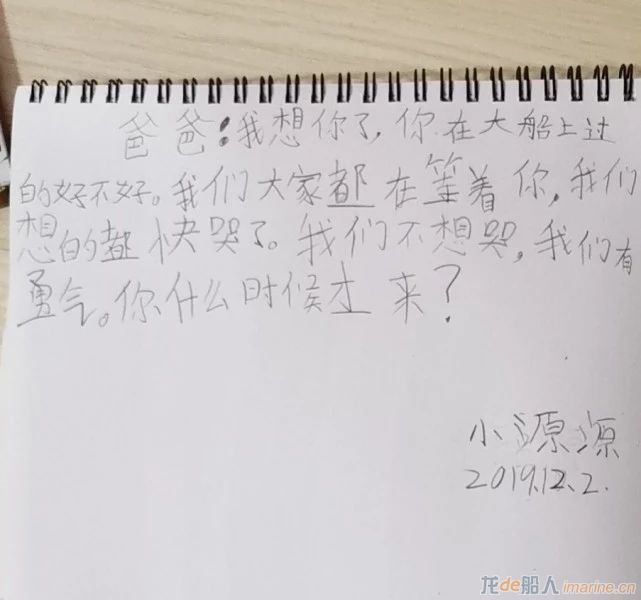 爸爸:我想你了,你在大船上过
的好不好。我们大家都在等着你,我们
想的都快哭了。我们不想哭,我们有
勇气。你什么时候才来?
小源源
2019.12.2.
龙de船人 imarine.cn